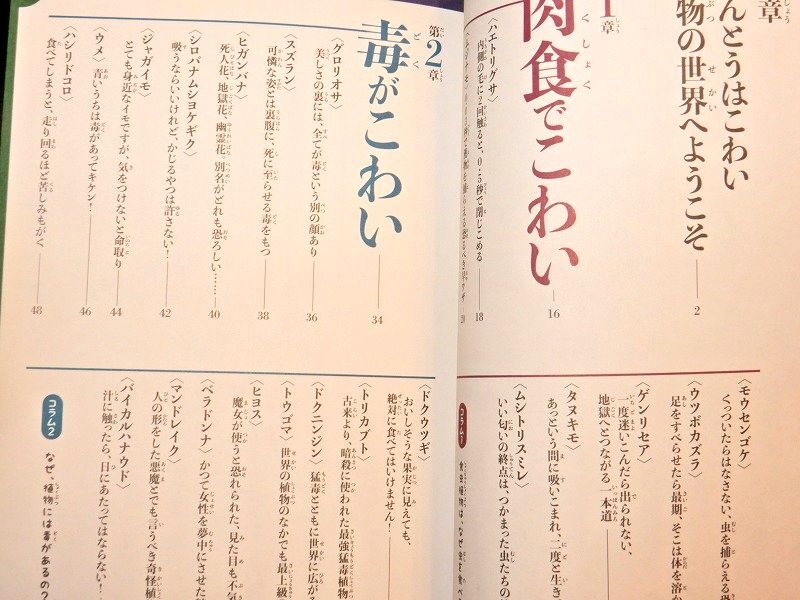 章
んとうはこわい
物の世界へようこそ
2
1章
肉食でこわい
16
〈ハエトリグサ〉
内側の毛に2回触ると、0.5秒で閉じこめる
18
20
〈モウセンゴケ〉
くっついたらはなさない、虫を捕らえる恐
〈ウツボカズラ〉
足をすべらせたら最期、そこは体を溶か
〈ゲンリセア〉
一度迷いこんだら出られない、
地獄へとつながる一本道
〈タヌキモ〉
あっという間に吸いこまれ、二度と生き
〈ムシトリスミレ〉
いい匂いの終点は、つかまった虫たちの
コラム1
食虫植物は、なぜ虫を食べ
第2章
毒がこわい
34
〈グロリオサ〉
美しさの裏には、全てが毒という別の顔あり
36
〈スズラン〉
可憐な姿とは裏腹に、死に至らせる毒をもつ
38
〈ヒガンバナ〉
死人花、地獄花、幽霊花 別名がどれも恐ろしい……
40
〈シロバナムシヨケギク〉
吸うならいいけれど、かじるやつは許さない!
42
〈ジャガイモ〉
とても身近なイモですが、気をつけないと命取り
44
〈ウメ〉 青いうちは毒があってキケン!
46
〈ハシリドコロ〉
食べてしまうと、走り回るほど苦しみもがく
48
〈ドクウツギ〉
おいしそうな果実に見えても、
絶対に食べてはいけません!
〈トリカブト〉
古来より、暗殺に使われた最強猛毒植物
〈ドクニンジン〉 猛毒とともに世界に広がる
〈トウゴマ〉 世界の植物のなかでも最上級
〈ヒヨス〉
魔女が使うと恐れられた、見た目も不気
〈ベラドンナ〉 かつて女性を夢中にさせた
〈マンドレイク〉
人の形をした悪魔とでも言うべき奇怪植
〈バイカルハナウド〉
汁に触ったら、日にあたってはならない!
コラム2
なぜ、植物には毒があるの?